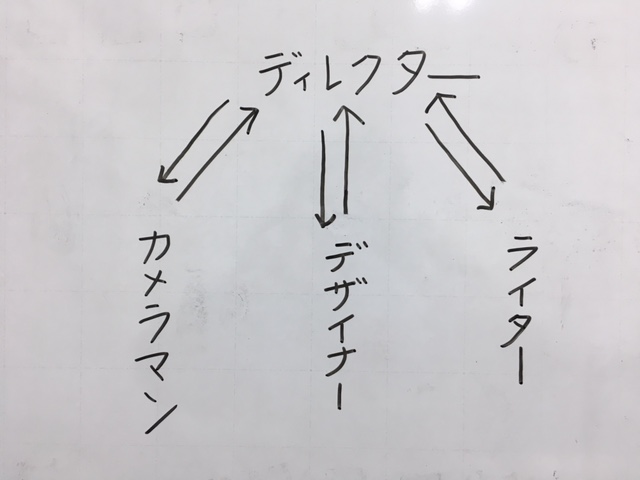 ディレクター
カメラマン
デザイナー
ライター